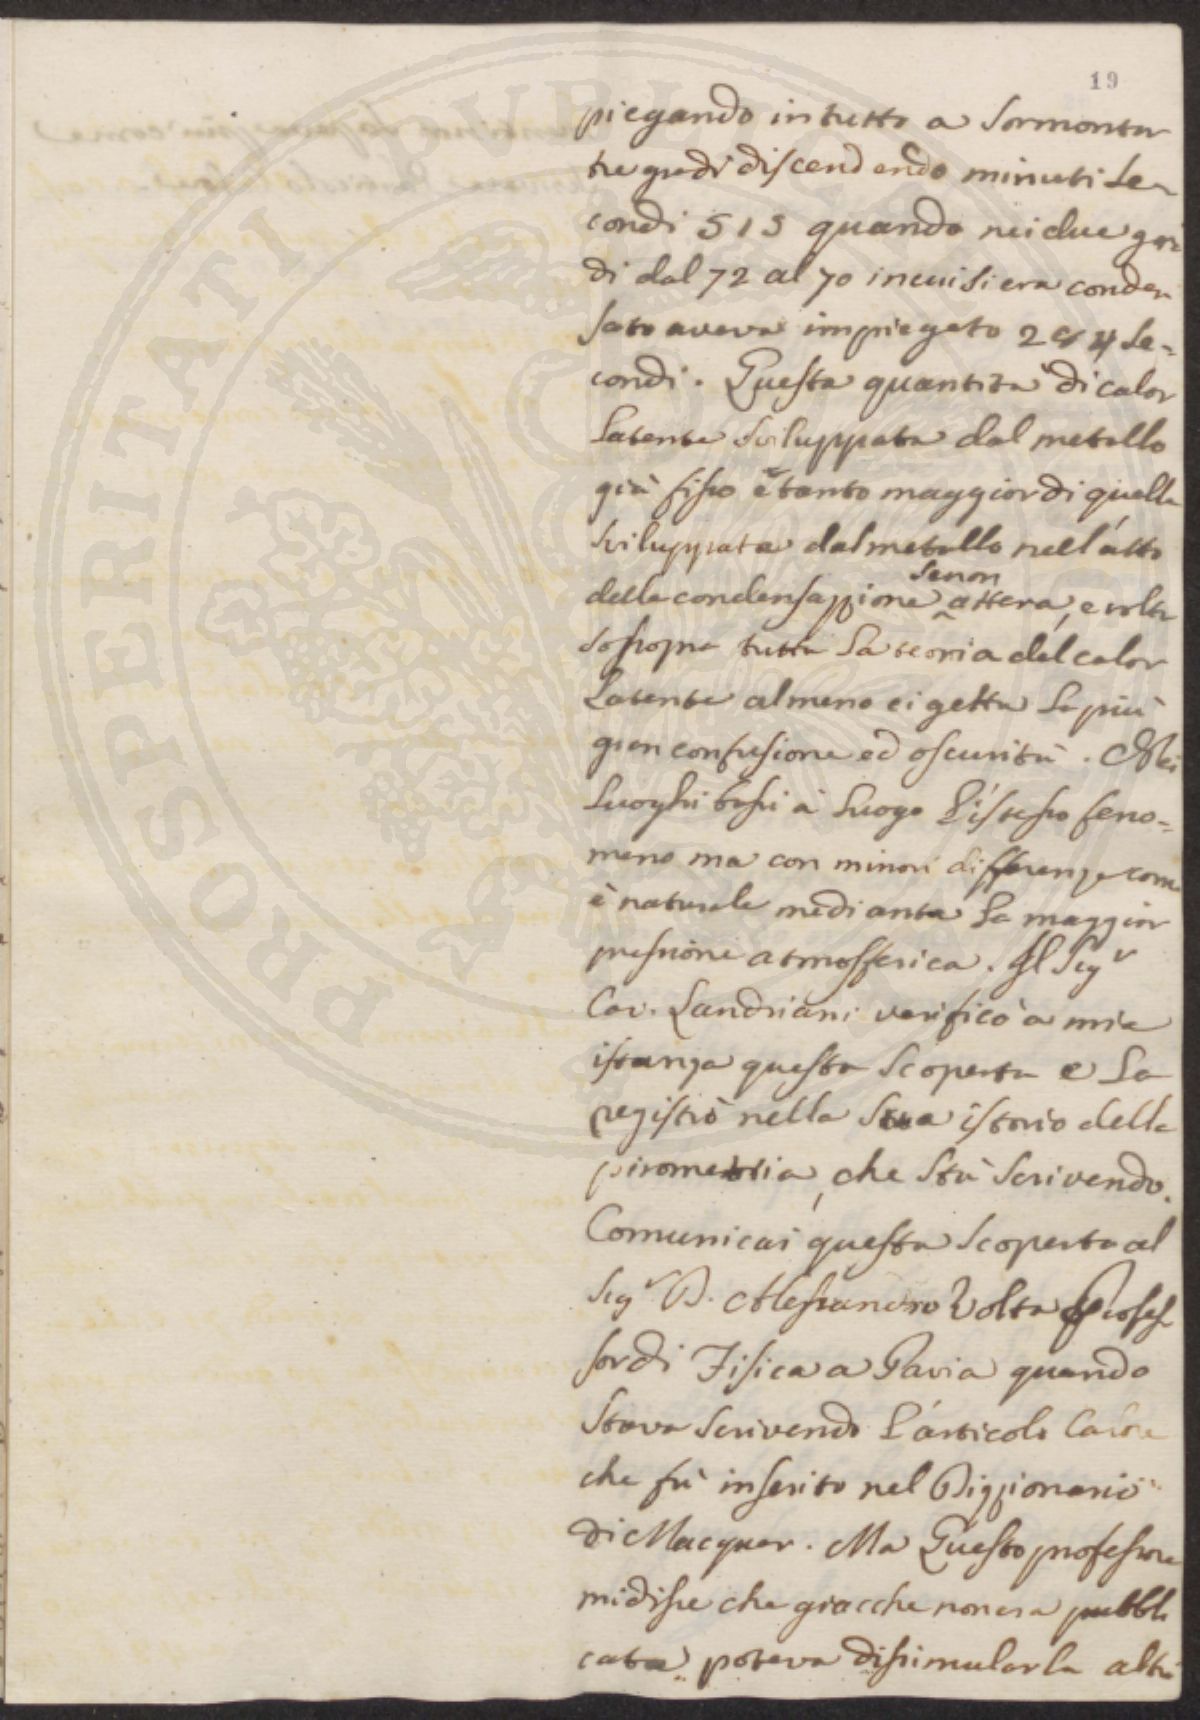 19
piegando in tutto a sormontar
tre gradi discendendo minuti se-
condi 515 quando nei due gra
di dal 72 al 70 in cui si era conden
sato aveva impiegato 284 se=
condi. Questa quantità di calor
latente sviluppata dal metallo
già fisso è tanto maggior di quella
sviluppata dal metallo nell'atto
della condensazzione se non attera, e volta
sossopra tutta la teoria del calor
latente almeno ci getta la più
gran confusione ed oscurità. Nei
luoghi bassi à luogo l'istesso feno=
meno ma con minori differenze come
è naturale mediante la maggior
pressione atmosferica. Il Sigr
Cav. Landriani verificò a mia
istanza questa scoperta e la
registrò nella sua istorio della
pirometria, che stà scrivendo.
Comunicai questa scoperta al
Sigr D. Alessandro Volta Profes
sor di Fisica a Pavia quando
stava scrivendo l'articolo Calore
che fù inserito nel Dizzionario
di Macquer. Ma Questo professore
mi disse che giacche non era pubbli
cata poteva dissimularla altri
PROSPERITATI PVBLICAE